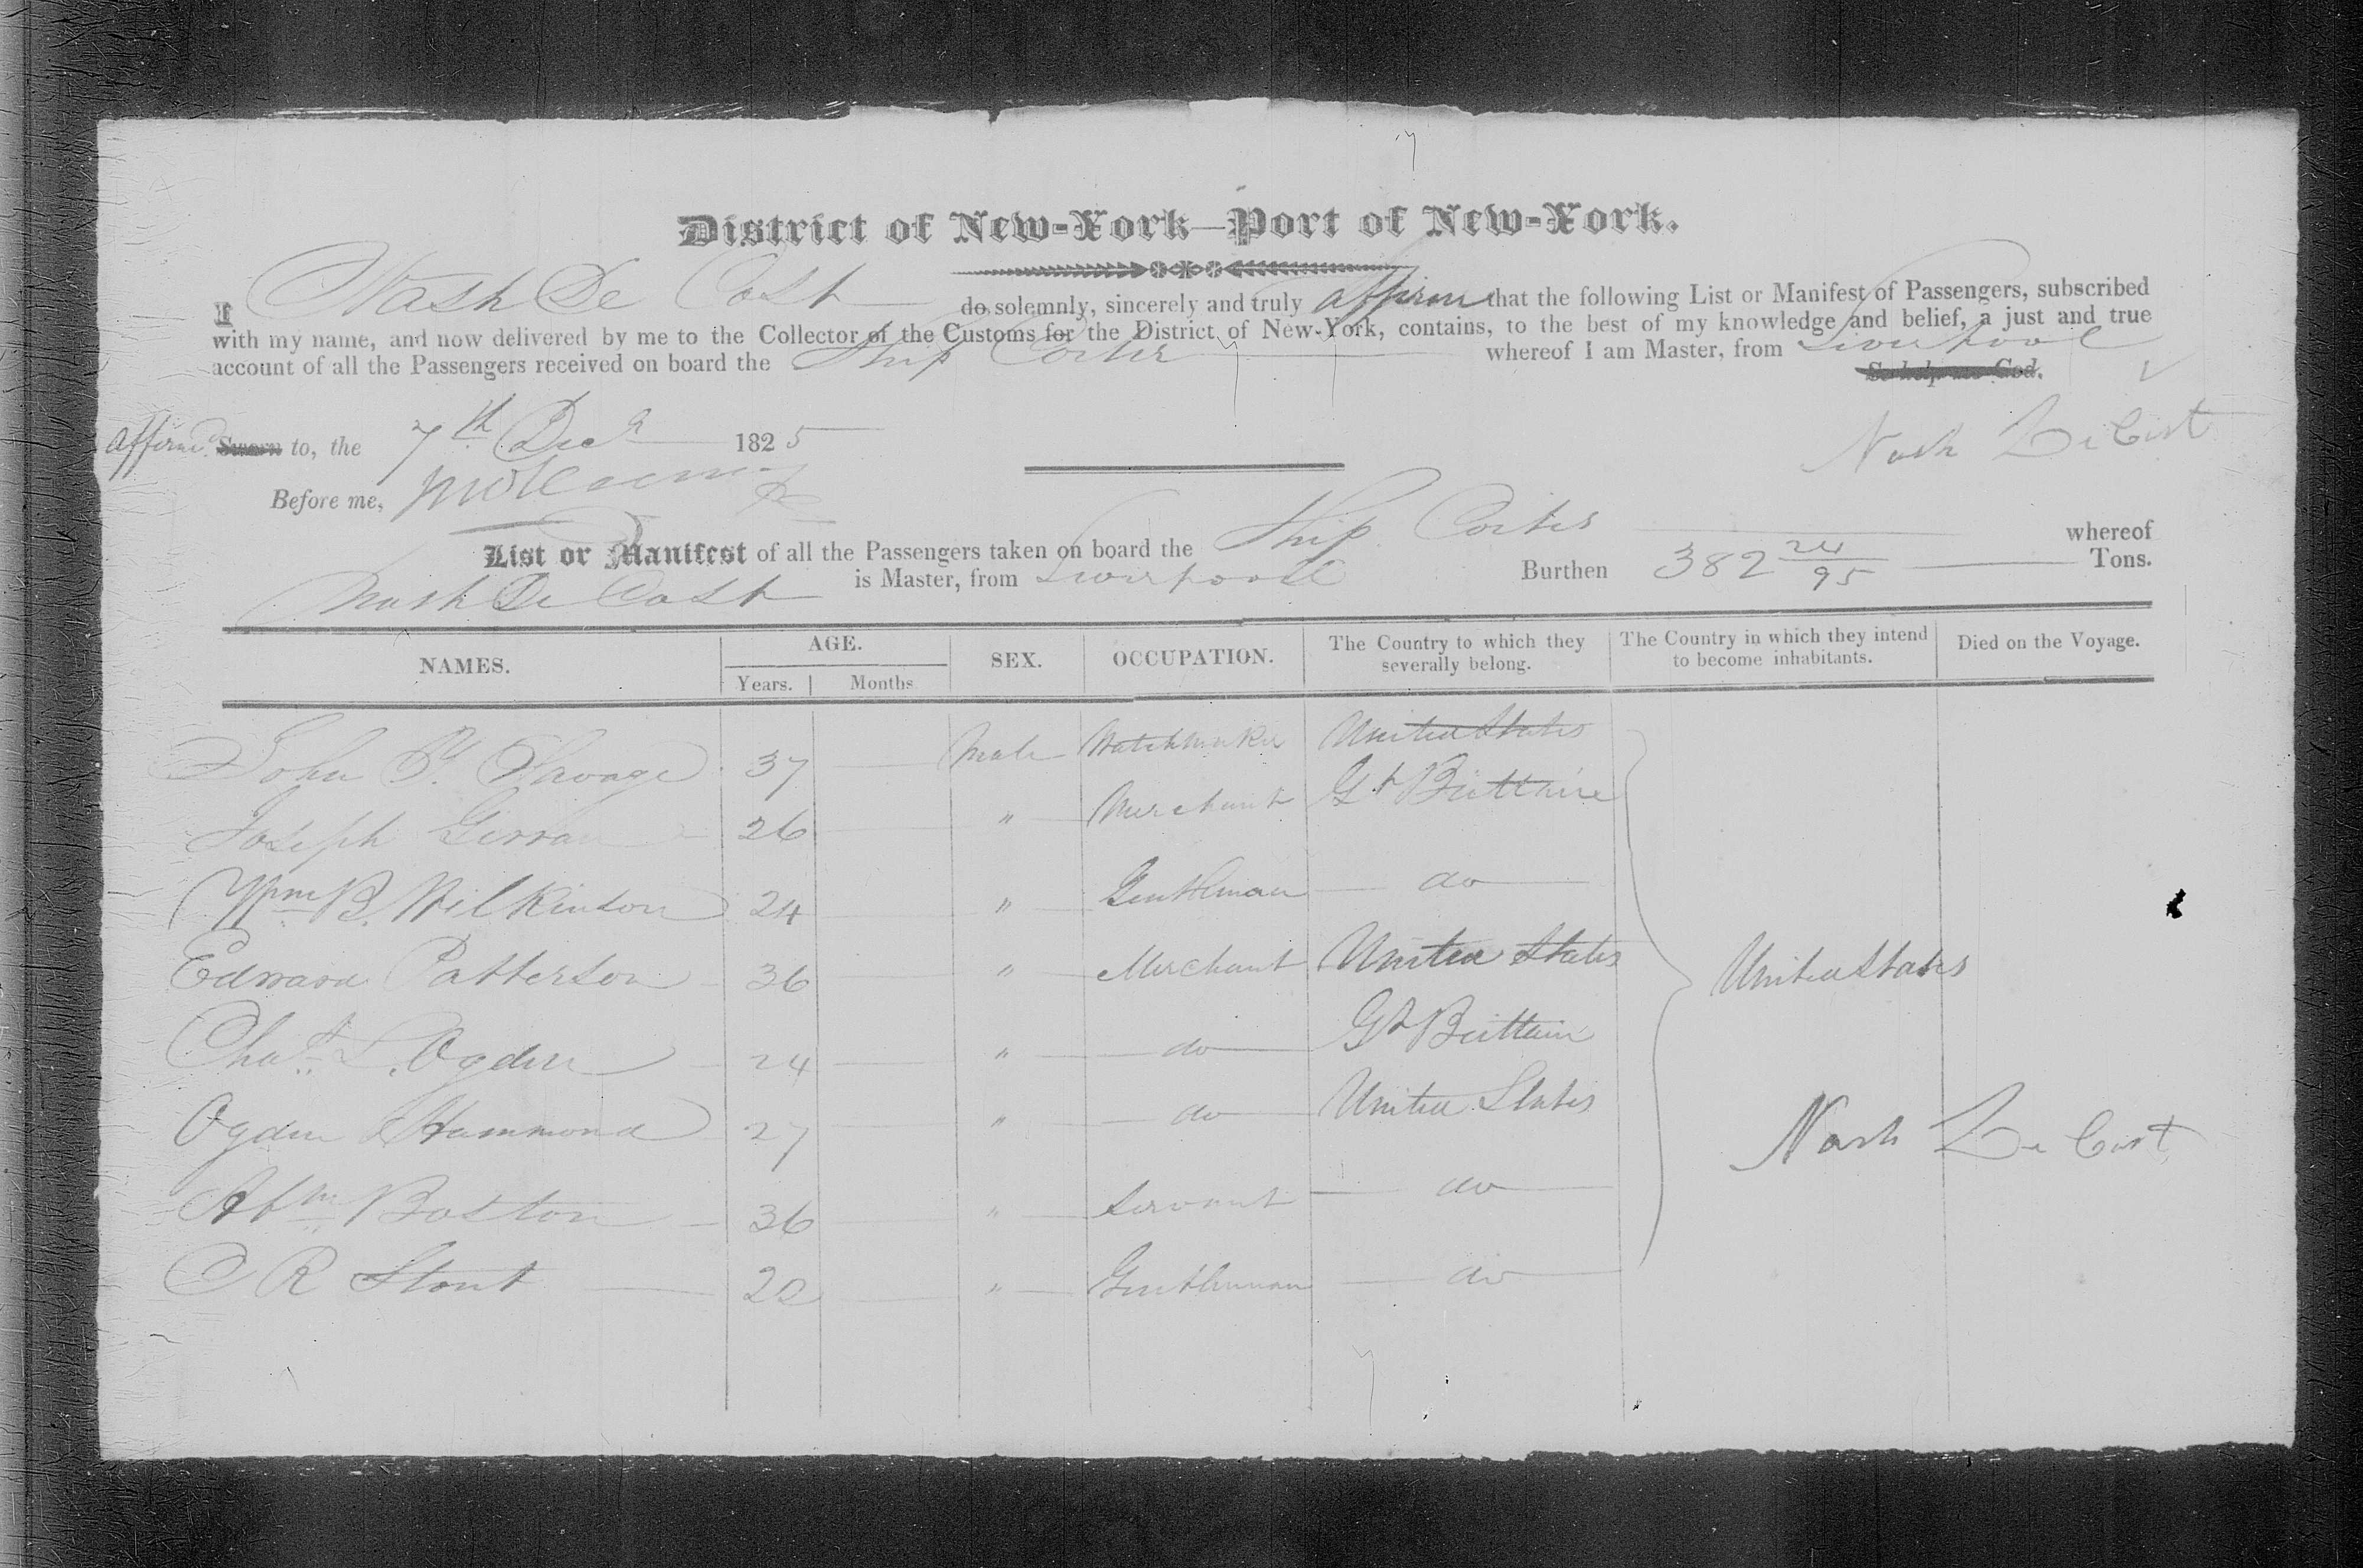 District of New-York—Port of New-York.
I Nash De Cost do solemnly, sincerely and truly affirm that the following List or Manifest of Passengers, subscribed
with my name, and now delivered by me to the Collector of the Customs for the District of New-York, contains, to the best of my knowledge and belief, a just and true
account of all the Passengers received on board the Ship Cortes whereof I am Master, from Liverpool
So help me God.
Affirmd Sworn to, the 7th Decr 1825
Nash De Cost
Before me,
List or Manifest of all the Passengers taken on board the Ship Cortes whereof
Nash De Cost is Master, from Liverpool Burthen 382 24/95 Tons.
NAMES. AGE. SEX. OCCUPATION. The Country to which they severally belong. The Country in which they intend to become inhabitants. Died on the Voyage.
Years. Months
John Y. Savage 37 Male Watchmaker United States
Joseph 26 " Merchant Gt Brittain
Wm B. Wilkinson 24 " Gentleman do
Edward Patterson 36 " Merchant United States United States
Chas L. Ogden 24 " do Gt Brittain
Ogden Hammond 27 " do United States
Nash De Cost
Abm Boston 36 " Servant do
C R Stout 20 " Gentleman do